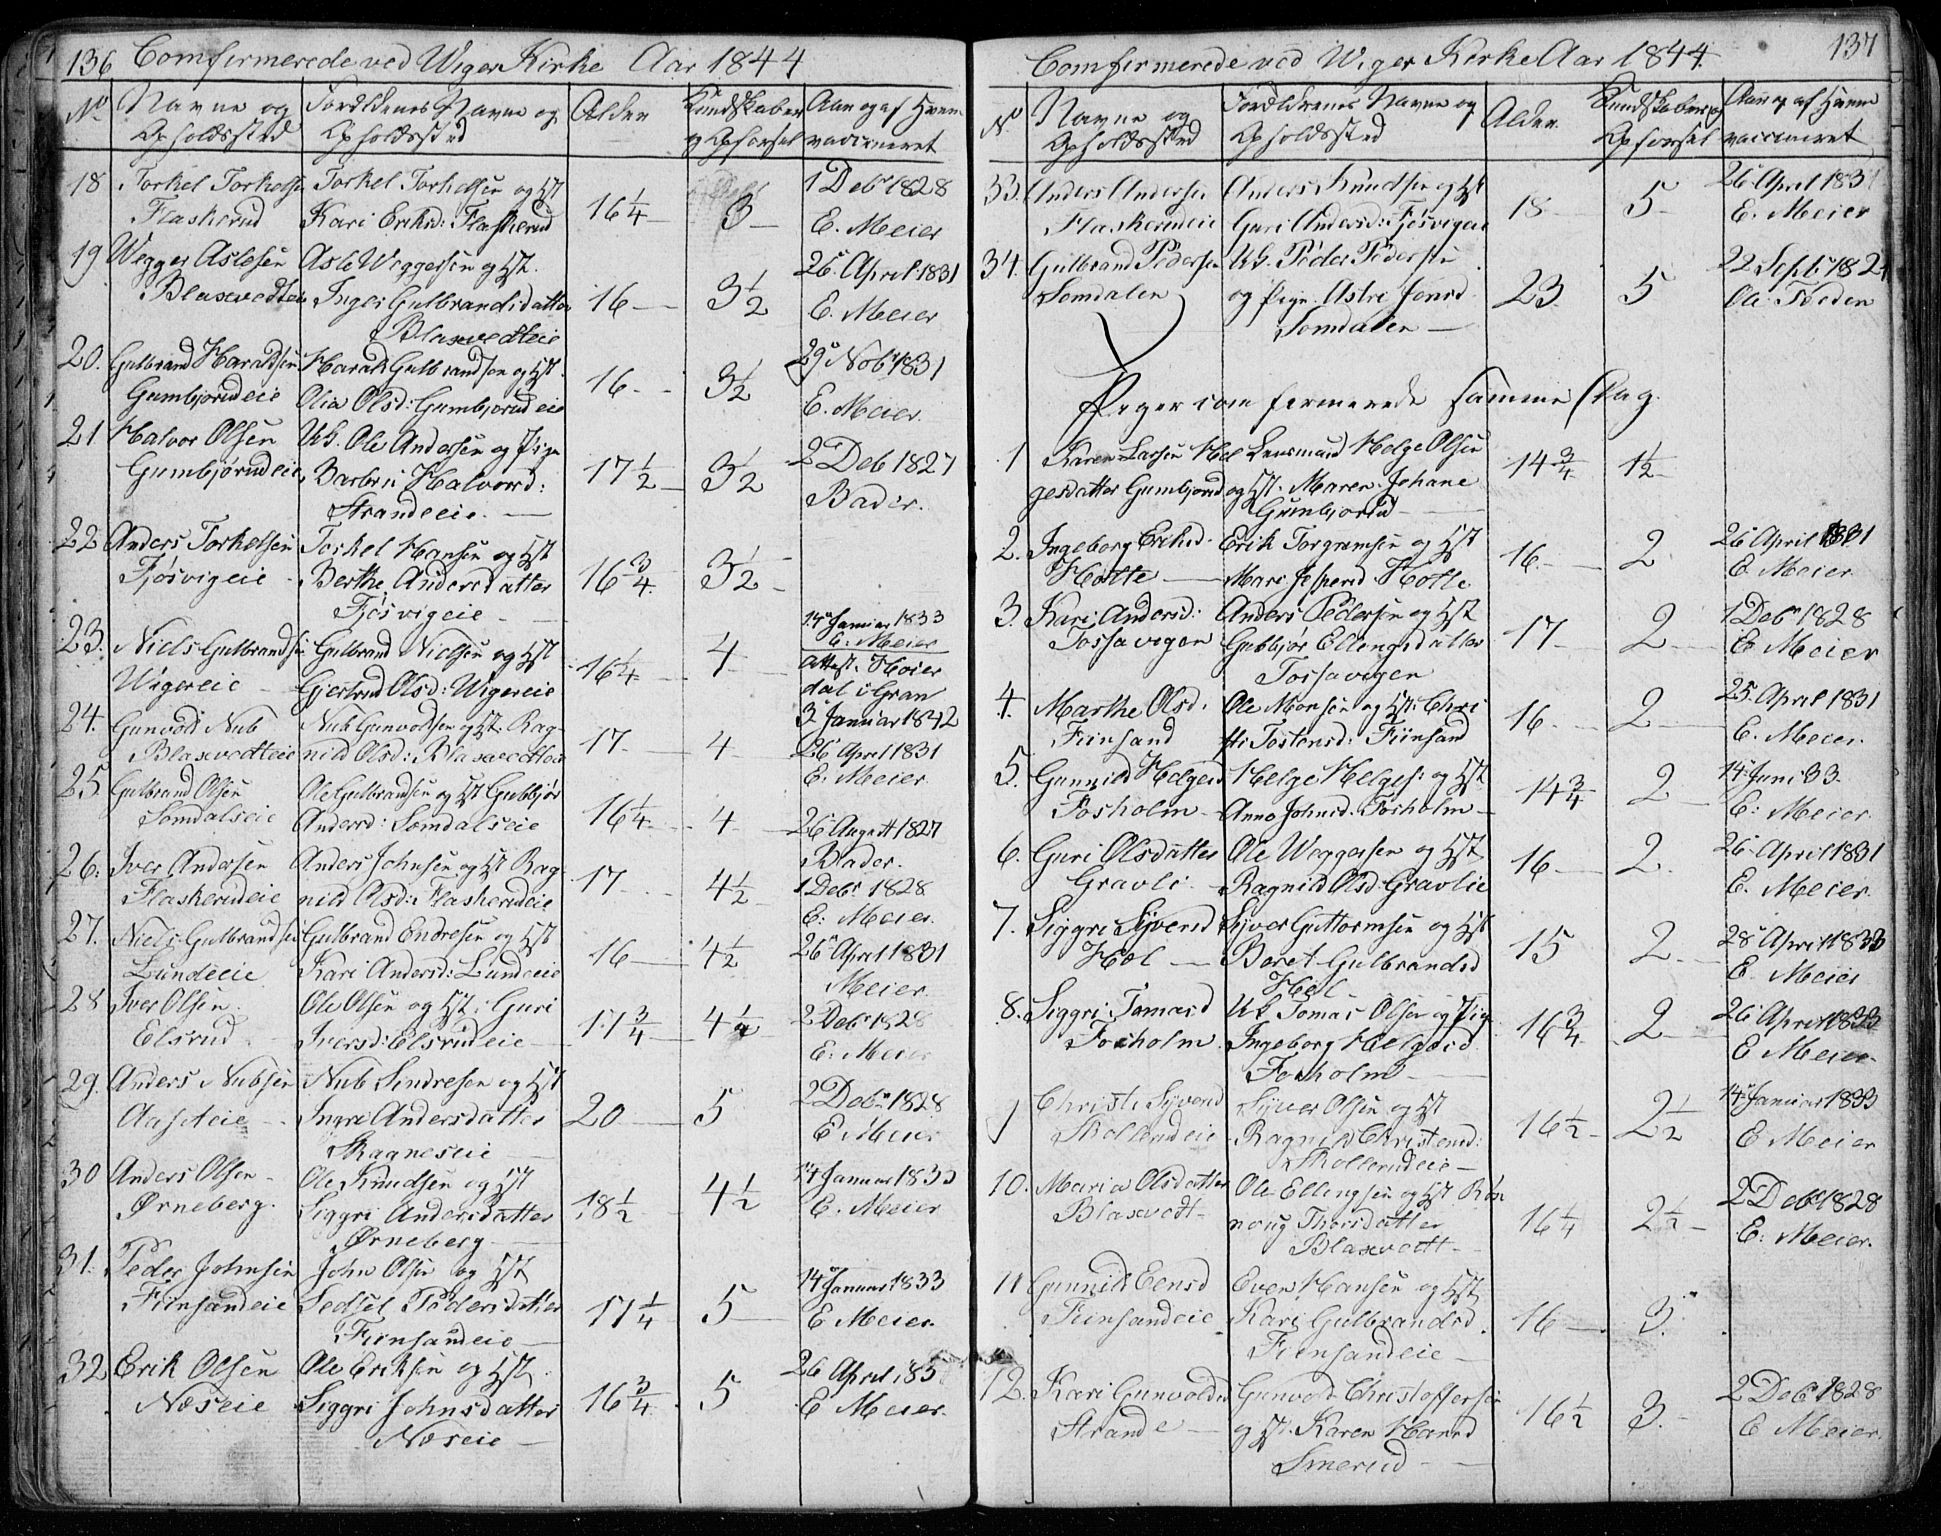 136 Comfirmerede ved Wiger Kirke Aar 1844
No Navne og Opholdssted Forældrenes Navne og Opholdssted Alder Kundskaber og Opførsel Aar og af Hvem vaccineret
18 Torkel Torkelsen Torkel Torkelsen og Hst 16 1/4 3 1 Debr 1828
Flaskerud Kari Eriksd: Flaskerud E. Meier
19 Wegger Aslesen Asle Weggersen og Hst. 16 3 1/2 26 April 1831
Blaxvedteie Inger Gulbrandsdatter E. Meier
Blaxvedteie
20. Gulbrand Haraldsen Harald Gulbrandsen og Hst. 16 3 1/2 29 Nobr 1831
Gumbjørudeie Olia Olsd: Gumbjørudeie E. Meier.
21 Halvor Olsen Uk. Ole Andersen og Pige 17 1/2 3 1/2 2 Deb 1827
Gumbjørudeie Barbri Halvord: Bader.
Strandeeie.
22 Anders Torkelsen Torkel Hansen og Hst 16 3/4 3 1/2
Fjøsvigeie Berthe Andersdatter
Fjøsvigeie
23. Niels Gulbrandsen Gulbrand Nielsen og Hst 16 1/4 4 14 Januar 1833
E: Meier
Wigereie Gjertrud Olsd: Wigereie Attest. Høier
dal i Gran
3 Januar 1842
24. Gunvold Nub Nub Gunvoldsen og Hst. Rag- 17 4 26 April 1831
Blaxvedteie nild Olsd: Blaxvedteie E. Meier
25 Gulbrand Olsen Ole Gulbrandsen og Hst Gubbjør 16 1/4 4 26 August 1827
Somdalseie Andersd: Somdalseie Bader.
26. Iver Andersen Anders Johnsen og Hst Rag- 17 4 1/2 1 Debr 1828
Flaskerudeie nild Olsd: Flaskerudeie E: Meier.
27. Niels Gulbrandsen Gulbrand Endresen og Hst 16 4 1/2 26 April 1831
Lundeeie Kari Andersd: Lundeeie Meier.
28 Iver Olsen Ole Olsen og Hst: Guri 17 3/4 4 1/2 2 Debr 1828
Elsrud Iversd: Elsrudeie E: Meier
29. Anders Nubsen Nub Sindresen og Hst 20 5 2 Debr 1828
Aasteie Ingra Andersdatter E Meier
Skagneseie
30 Anders Olsen Ole Knudsen og Hst 18 1/2 4 1/2 14 Januar 1833
Ørneberg. Siggri Andersdatter E. Meier
Ørneberg
31. Peder Johnsen John Olsen og Hst 17 1/4 5 14 Januar 1833
Finsandeie Sedsel Pedersdatter E Meier.
Finsandeie
32 Erik Olsen Ole Eriksen og Hst. 16 3/4 5 26 April 183
Næseie Siggri Johnsdatter E Meier.
Næseie
Comfirmerede ved Wiger Kirke Aar 1844. 137
N. Navne og Opholdssted Forældrenes Navne og Opholdssted Alder. Kundskaber og Opførsel Aar og af Hvem vaccineret
33. Anders Andersen Anders Knudsen og Hst 18 5 26 April 1831
Flaskerudeie Guri Andersd: Fjøsvigeie E. Meier
34. Gulbrand Pedersen Uk. Peder Pedersen 23. 5 22 Septr 1824
Somdalen og Pige. Astri Jonsd Ole Froden
Somdalen
Piger comfermerede samme Dag.
1 Karen Larsen Hel Lensmand Helge Olsen 14 3/4 1 1/2
gesdatter Gumbjørud og Hst. Maren Johane
Gumbjørud
2. Ingeborg Eriksd. Erik Torgrimsen og Hst 16. 2 26 April 1831
Hølte Mari Jespersd Hølte E Meier
3. Kari Andersd: Anders Pedersen og Hst 17 2 1 Debr 1828
Tossavigen Gubbjør Ellingsdatter E Meier
Tossavigen
4. Marthe Olsd. Ole Monsen og Hst: Chri 16 2 25 April 1831
Finsand sti Tostensd: Finsand E. Meier.
5. Gunnild Helgesd Helge Helges: og Hst 14 3/4 2 14 Juni 33.
Fosholm Anne Johnsd: Fosholm E: Meier.
6. Guri Olsdatter Ole Weggersen og Hst 16 2 26 April 1831
Gravli Ragnild Olsd Gravlie E. Meier.
7. Siggri Syversd Syver Guttormsen og Hst 15 2 28 April 1833
Hol Boret Gulbrandsd E. Meier
Hol
8. Siggri Tomasd Uk Tomas Olsen og Pige 16 3/4 2 26 April 1833
Fosholm Ingeborg Helgesd E Meier.
Fosholm
9 Christi Syversd Syver Olsen og Hst 16 1/2 2 1/2 14 Januar 1833
Skollerudeie Ragnild Christensd: E Meier
Skollerudeie
10. Maria Olsdatter Ole Ellingsen og Hst Røn 16 1/4 2 1/2 2 Debr 1828
Blaxvedt noug Thorsdatter E: Meier.
Blaxvedt
11 Gunnild Eensd Even Hansen og Hst 16 3.
Finsandeie Kari Gulbrandsd
Finsandeie
12. Kari Gunvoldsd Gunvold Christoffersen 16 1/2 3. 2 Debr 1828
Strande og Hst. Karen Hansd E Meier.
Smerud